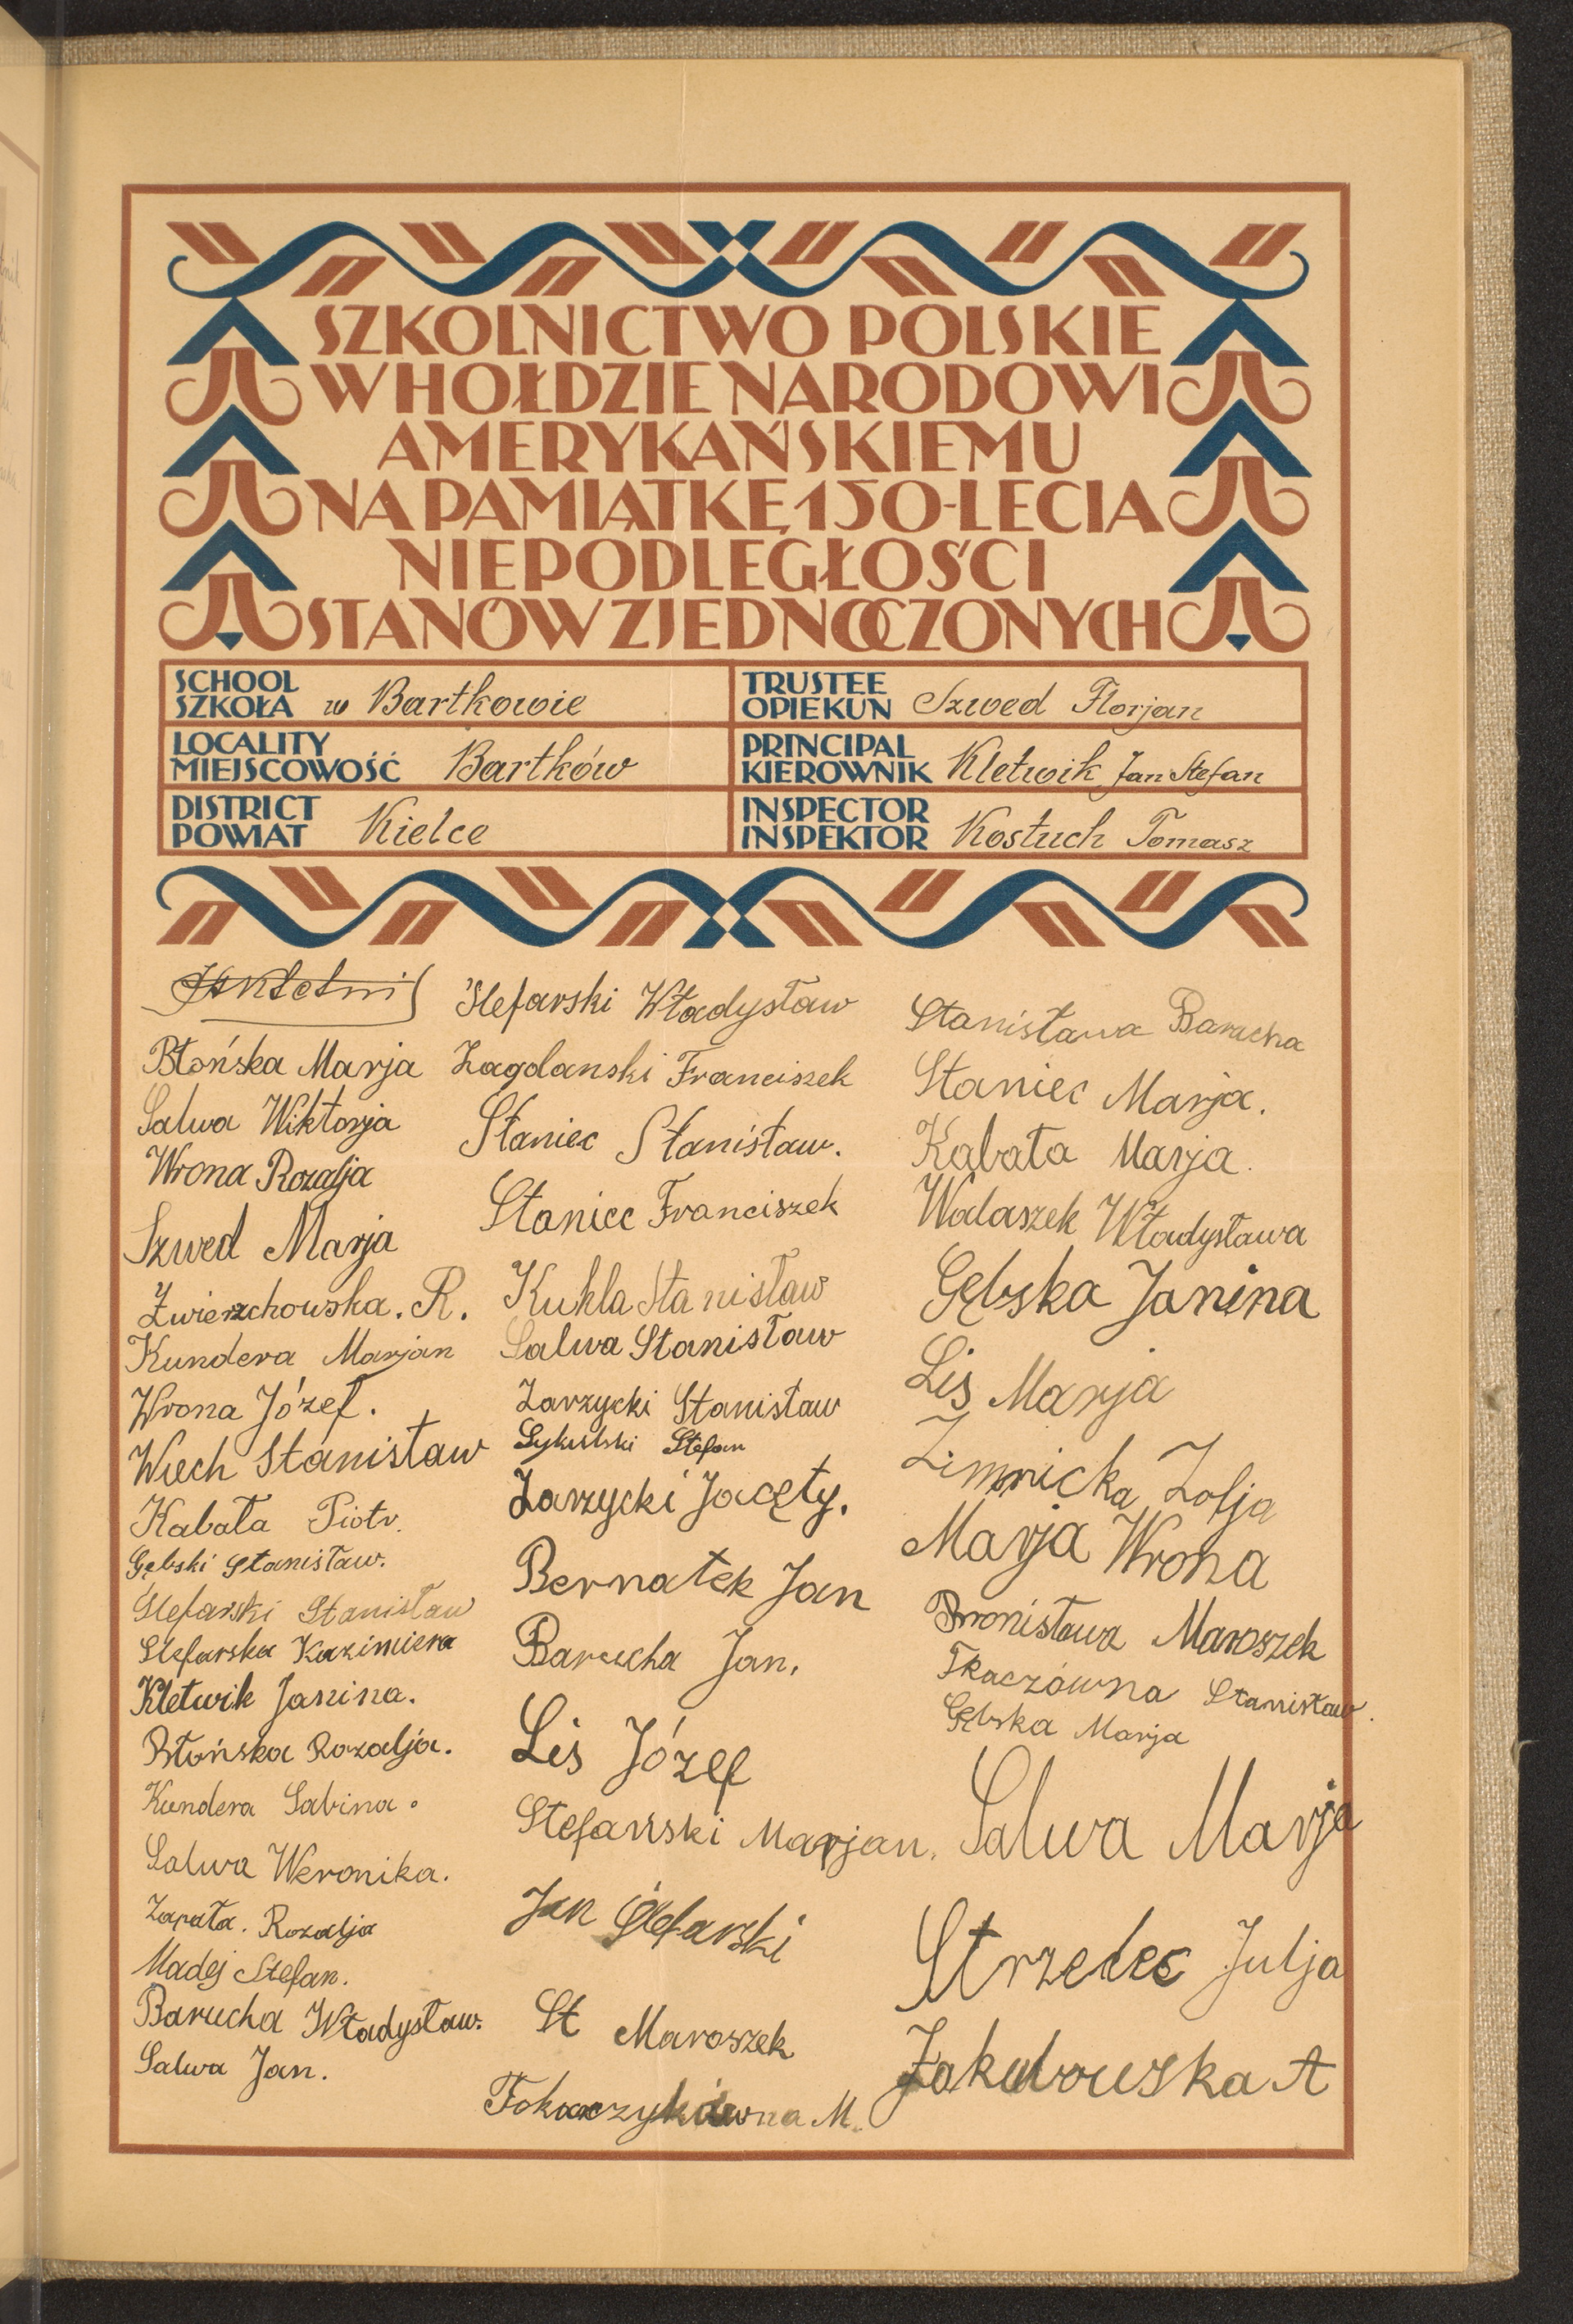 SZKOLNICTWO POLSKIE
W HOŁDZIE NARODOWI
AMERYKAŃSKIEMU
NA PAMIĄTKĘ 150-LECIA
NIEPODLEGŁOŚCI
STANÓW ZJEDNOCZONYCH
SCHOOL
SZKOŁA w Bartkowie
TRUSTEE
OPIEKUN Szwed Florjan
LOCALITY
MIEJSCOWOŚĆ Bartków
PRINCIPAL
KIEROWNIK Kletwik Jan Stefan
DISTRICT
POWIAT Kielce
INSPECTOR
INSPEKTOR Kostuch Tomasz
Błońska Marja
Salwa Wiktorja
Wrona Rozalja
Szwed Marja
Zwierzchowska. R.
Kundera Marjan
Wrona Józef.
Wiech Stanisław
Kabata Piotr.
Gębski Stanisław.
Ślefarski Stanisław
Slefarska Kazimiera
Kletwik Janina.
Błońska Rozalja.
Kundera Sabina.
Salwa Weronika.
Zapała. Rozalja
Madej Stefan.
Barucha Władysław.
Salwa Jan.
Ślefarski Władysław
Zagdanski Franciszek
Staniec Stanisław.
Staniec Franciszek
Kukla Stanisław
Salwa Stanisław
Zarzycki Stanisław
Sykulski Stefan
Zarzycki Jacęty.
Bernatek Jan
Barucha Jan.
Lis Józef
Slefarski Marjan.
Jan Ślefarski
St Maroszek
Tokarczykówna M.
Stanisława Barucha
Staniec Marja.
Kabata Marja.
Walaszek Władysława
Gębska Janina
Lis Marja
Zimnicka Zofja
Marja Wrona
Bronisława Maroszek
Tkaczówna Stanisław.
Gębska Marja
Salwa Marja
Strzelec Julja
Jakubowska A